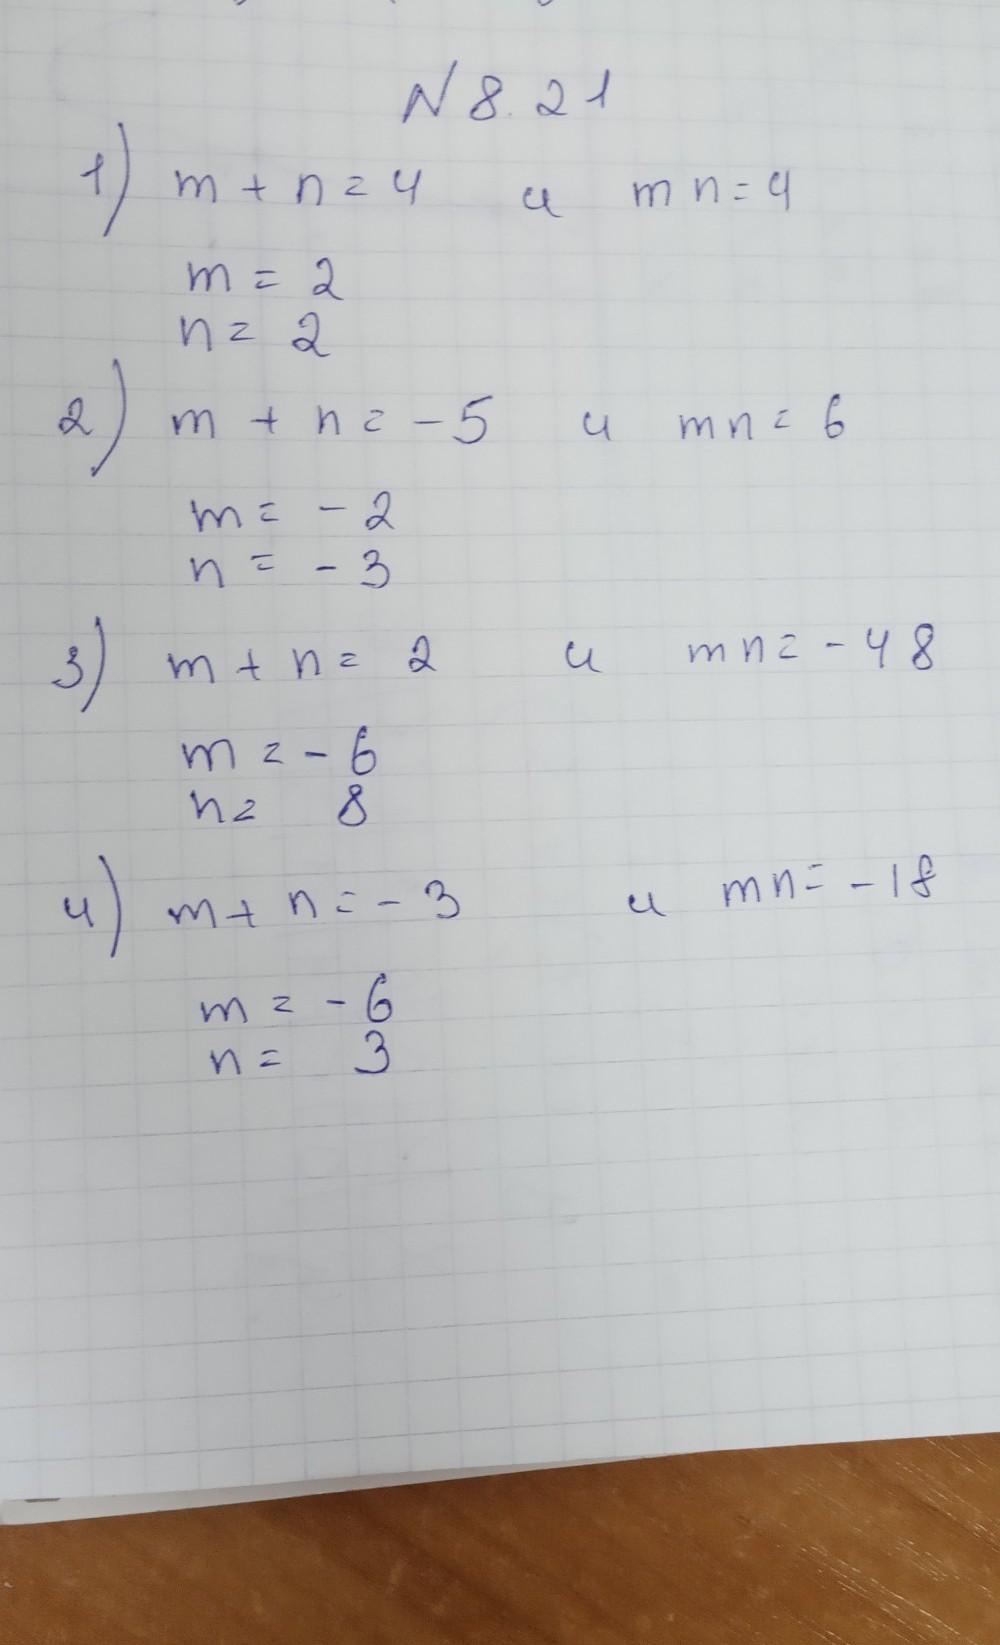 N 8.21
1) m + n = 4 и mn = 4
m = 2
n = 2
2) m + n = -5 и mn = 6
m = -2
n = -3
3) m + n = 2 и mn = -48
m = -6
n = 8
4) m + n = -3 и mn = -18
m = -6
n = 3